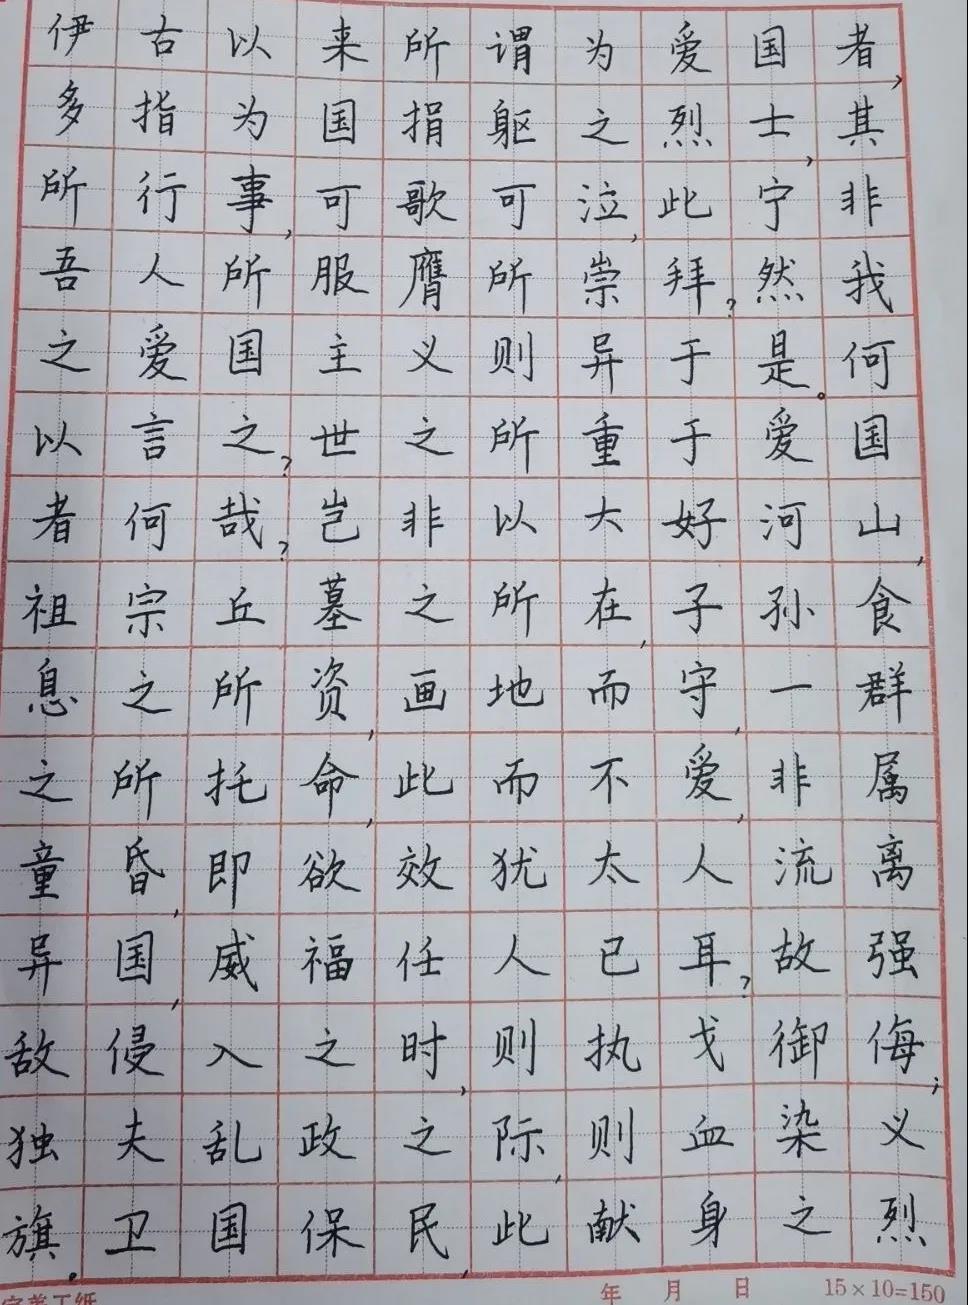 伊古以来所谓为爱国者,
多指为国捐躯之烈士,其
所行事,可歌可泣,此宁非
吾人所服膺所崇拜?然我
之爱国主义则异于是。何
以言之?世之所重于爱国
者何哉?岂非以大好河山,
祖宗丘墓之所在,子孙食
息之所资,画地而守,一群
之所托命,此而不爱,非属
童昏,即欲效犹太人流离
异国,威福任人已耳?故强
敌侵入之时,则执戈御侮;
独夫乱政之际,则血染义
旗。卫国保民,此献身之烈
年 月 日 15×10=150